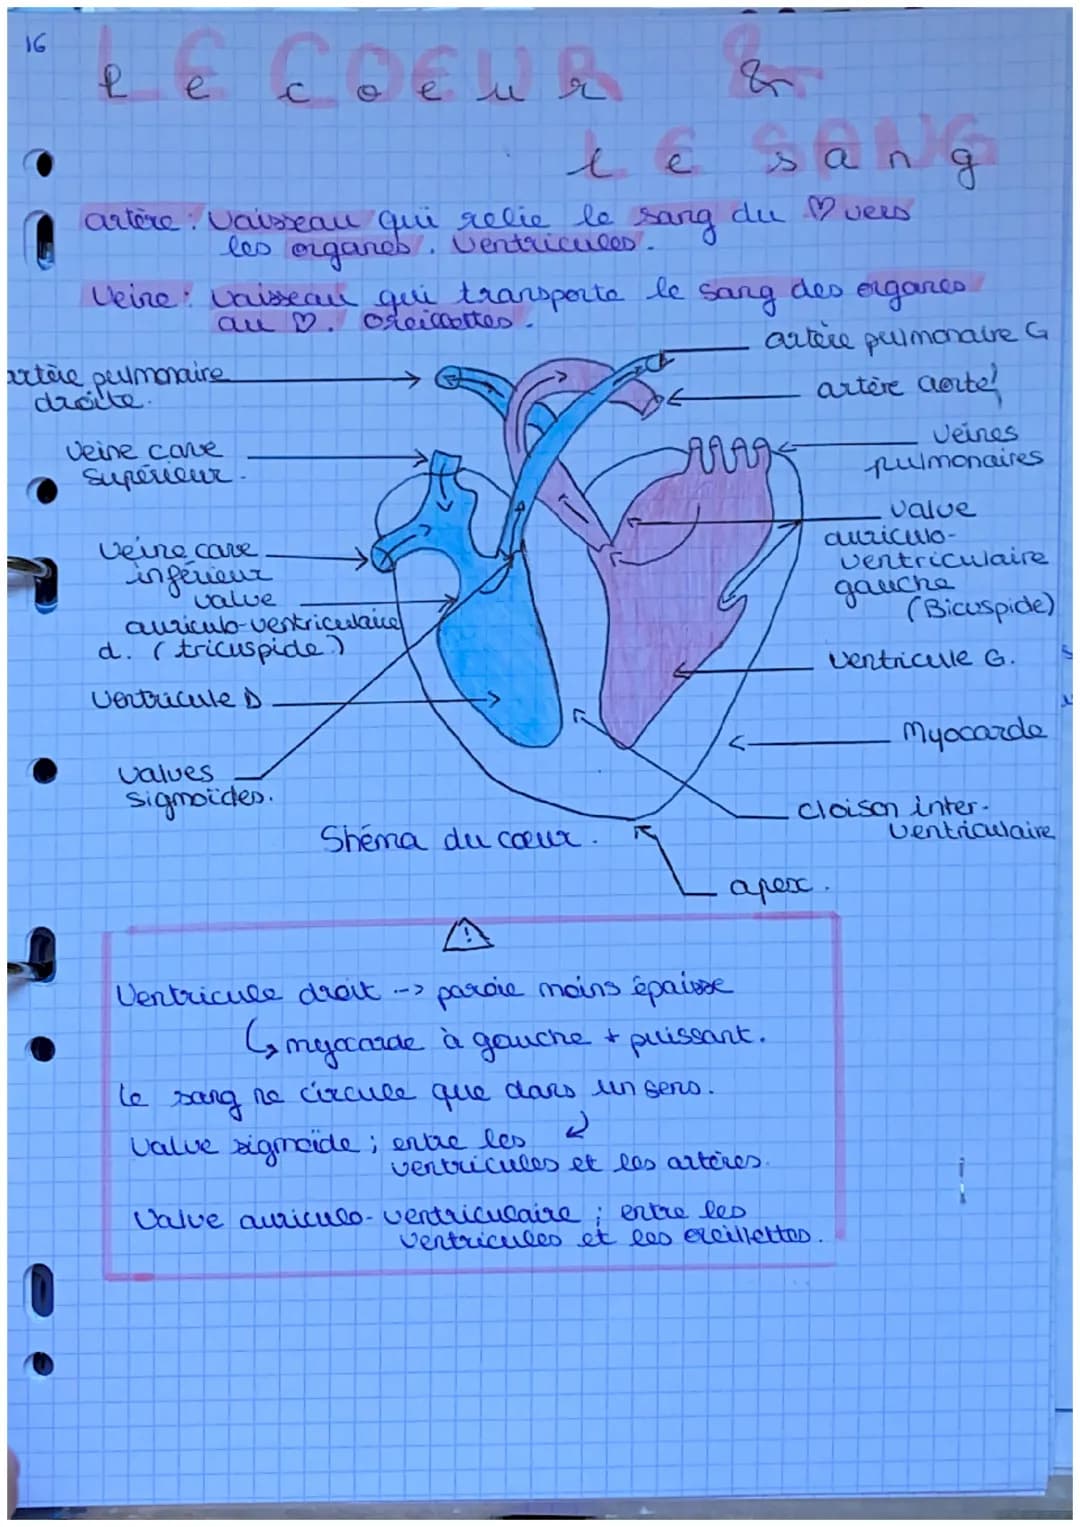 16
LE COEUR &
Le coeur &
LE SANG
le sang
artère : Vaisseau qui relie le sang du ♡ vers
les organes. Ventricules.
Veine : vaisseau qui transporte le sang des organes
au ♡. Oreillettes.
artère pulmonaire G
artère pulmonaire
droite.
artère aorte
Veine cave
supérieur.
Veines
pulmonaires
Veine cave
inférieur
valve
auriculo-
ventriculaire
gauche
(Bicuspide)
valve
auriculo-ventriculaire
d. (tricuspide)
Ventricule G.
Ventricule D
Myocarde
valves
sigmoïdes.
cloison inter-
ventriculaire
Shéma du cœur.
apex.
Ventricule droit --> paroie moins épaisse
↳ myocarde à gauche + puissant.
Le sang ne circule que dans un sens.
Valve sigmoïde ; entre les
ventricules et les artères.
Valve auriculo-ventriculaire ; entre les
ventricules et les oreillettes.